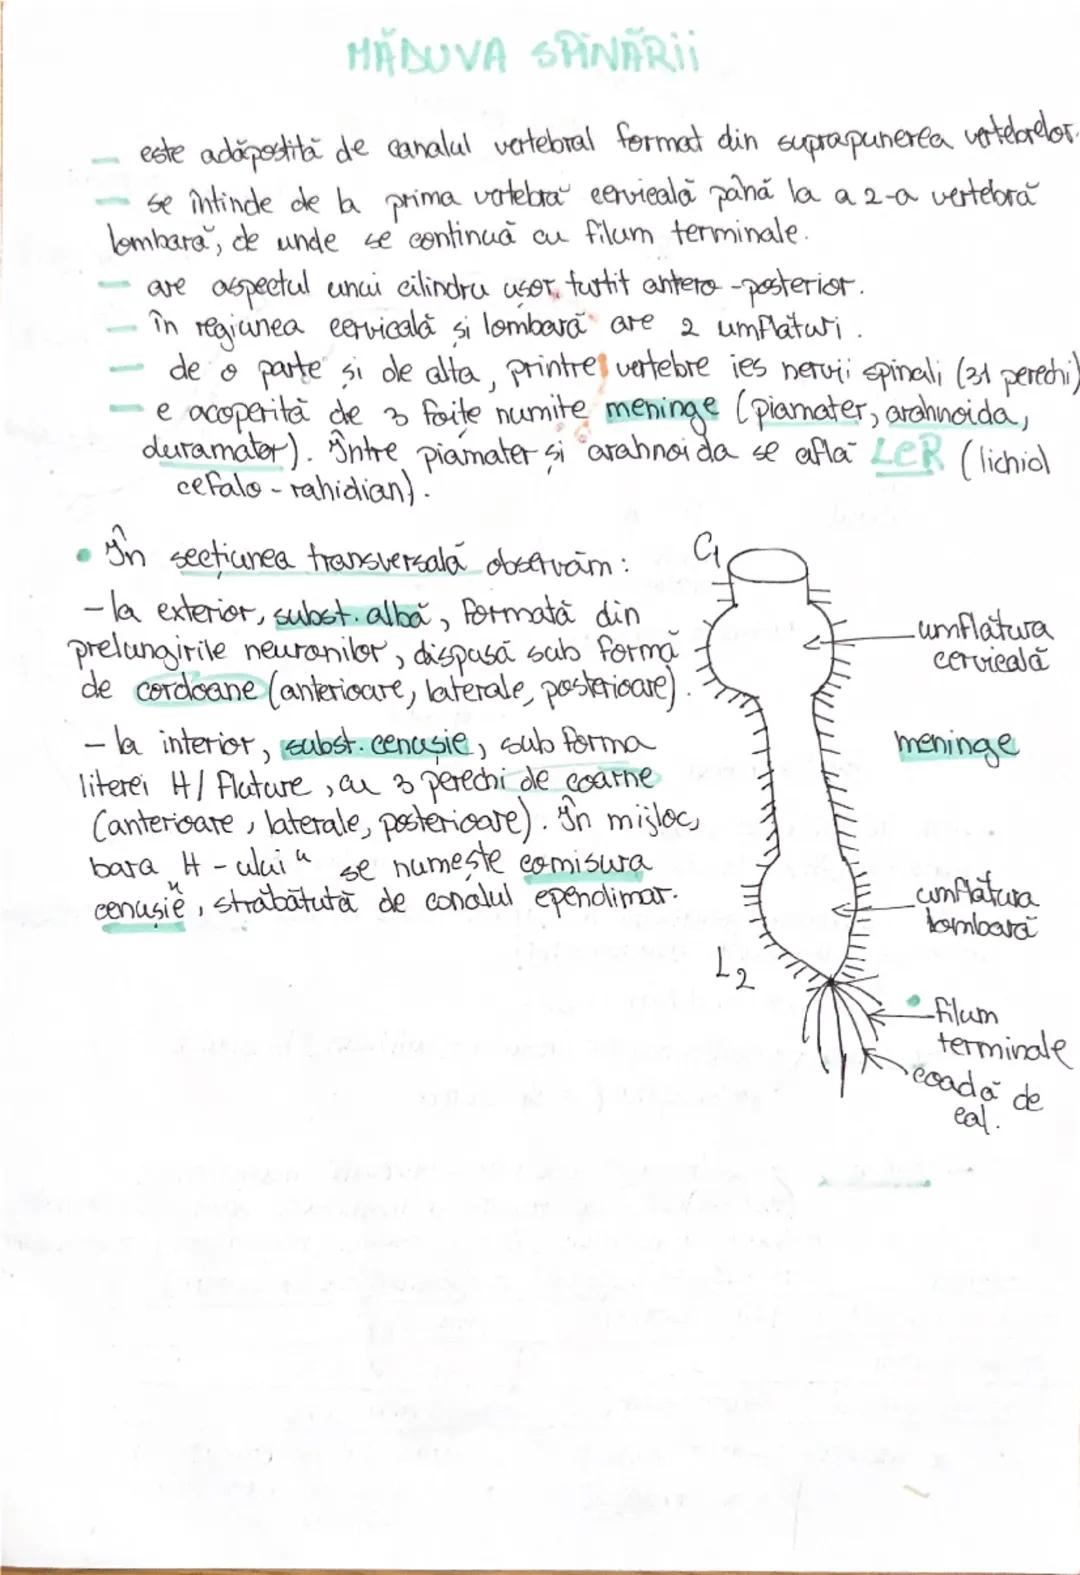 MĂDUVA SPINĂRII
— este adăpostită de canalul vertebral format din suprapunerea vertebrelor.
— se întinde de la prima vertebră cervicală până la a 2-a vertebră
lombară, de unde se continuă cu filum terminale.
— are aspectul unui cilindru ușor turtit antero-posterior.
— în regiunea cervicală și lombară are 2 umflături.
— de o parte și de alta, printre vertebre ies nervii spinali (31 perechi)
— e acoperită de 3 foițe numite meninge (piamater, arahnoida,
duramater). Între piamater și arahnoida se află LCR (lichid
cefalo-rahidian).
• În secțiunea transversală observăm:
– la exterior, subst. albă, formată din
prelungirile neuronilor, dispusă sub formă
de cordoane (anterioare, laterale, posterioare).
– la interior, subst. cenușie, sub forma
literei H/fluture, cu 3 perechi de coarne
(anterioare, laterale, posterioare). În mijloc,
bara „H-ului" se numește comisura
cenușie, străbătută de canalul ependimar.
C1
umflătura
cervicală
meninge
umflătura
lombară
L2
• filum
terminale
coadă de
cal.